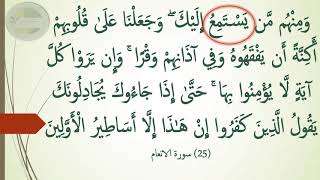 وَمِنْهُم مَّن يَسْتَمِعُ إِلَيْكَ ۖ وَجَعَلْنَا عَلَىٰ قُلُوبِهِمْ
أَكِنَّةً أَن يَفْقَهُوهُ وَفِي آذَانِهِمْ وَقْرًا ۚ وَإِن يَرَوْا كُلَّ
آيَةٍ لَّا يُؤْمِنُوا بِهَا ۚ حَتَّىٰ إِذَا جَاءُوكَ يُجَادِلُونَكَ
يَقُولُ الَّذِينَ كَفَرُوا إِنْ هَٰذَا إِلَّا أَسَاطِيرُ الْأَوَّلِينَ
(25) سورة الانعام